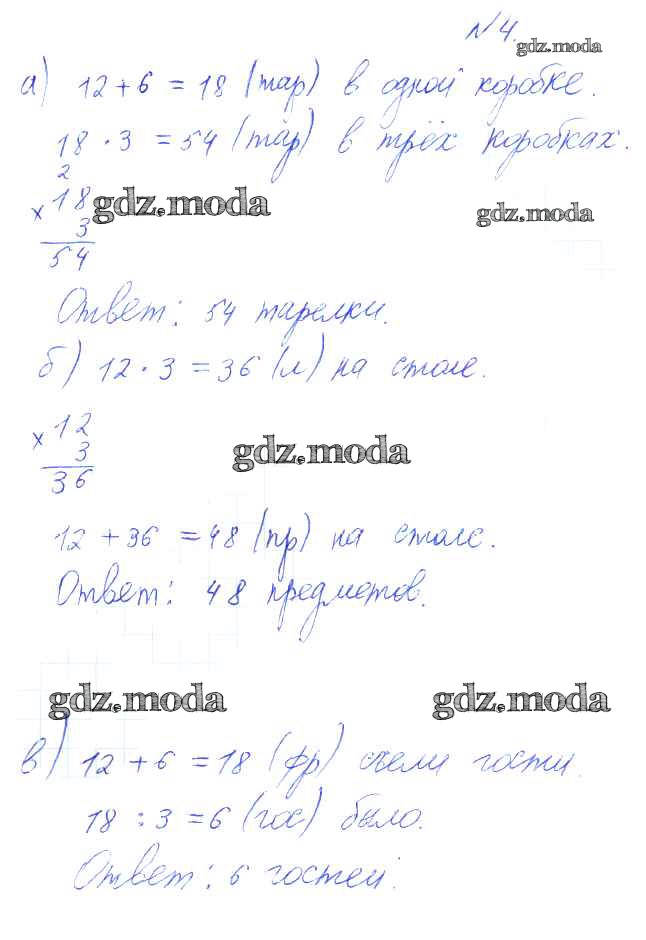 №4.
gdz.moda
а) 12 + 6 = 18 (тар) в одной коробке.
18 · 3 = 54 (тар) в трёх коробках.
2
× 18
gdz.moda
gdz.moda
3
54
Ответ: 54 тарелки.
б) 12 · 3 = 36 (л) на столе.
× 12
3
gdz.moda
36
12 + 36 = 48 (пр) на столе.
Ответ: 48 предметов.
gdz.moda
gdz.moda
в) 12 + 6 = 18 (фр) съели гости.
18 : 3 = 6 (гос) было.
Ответ: 6 гостей.